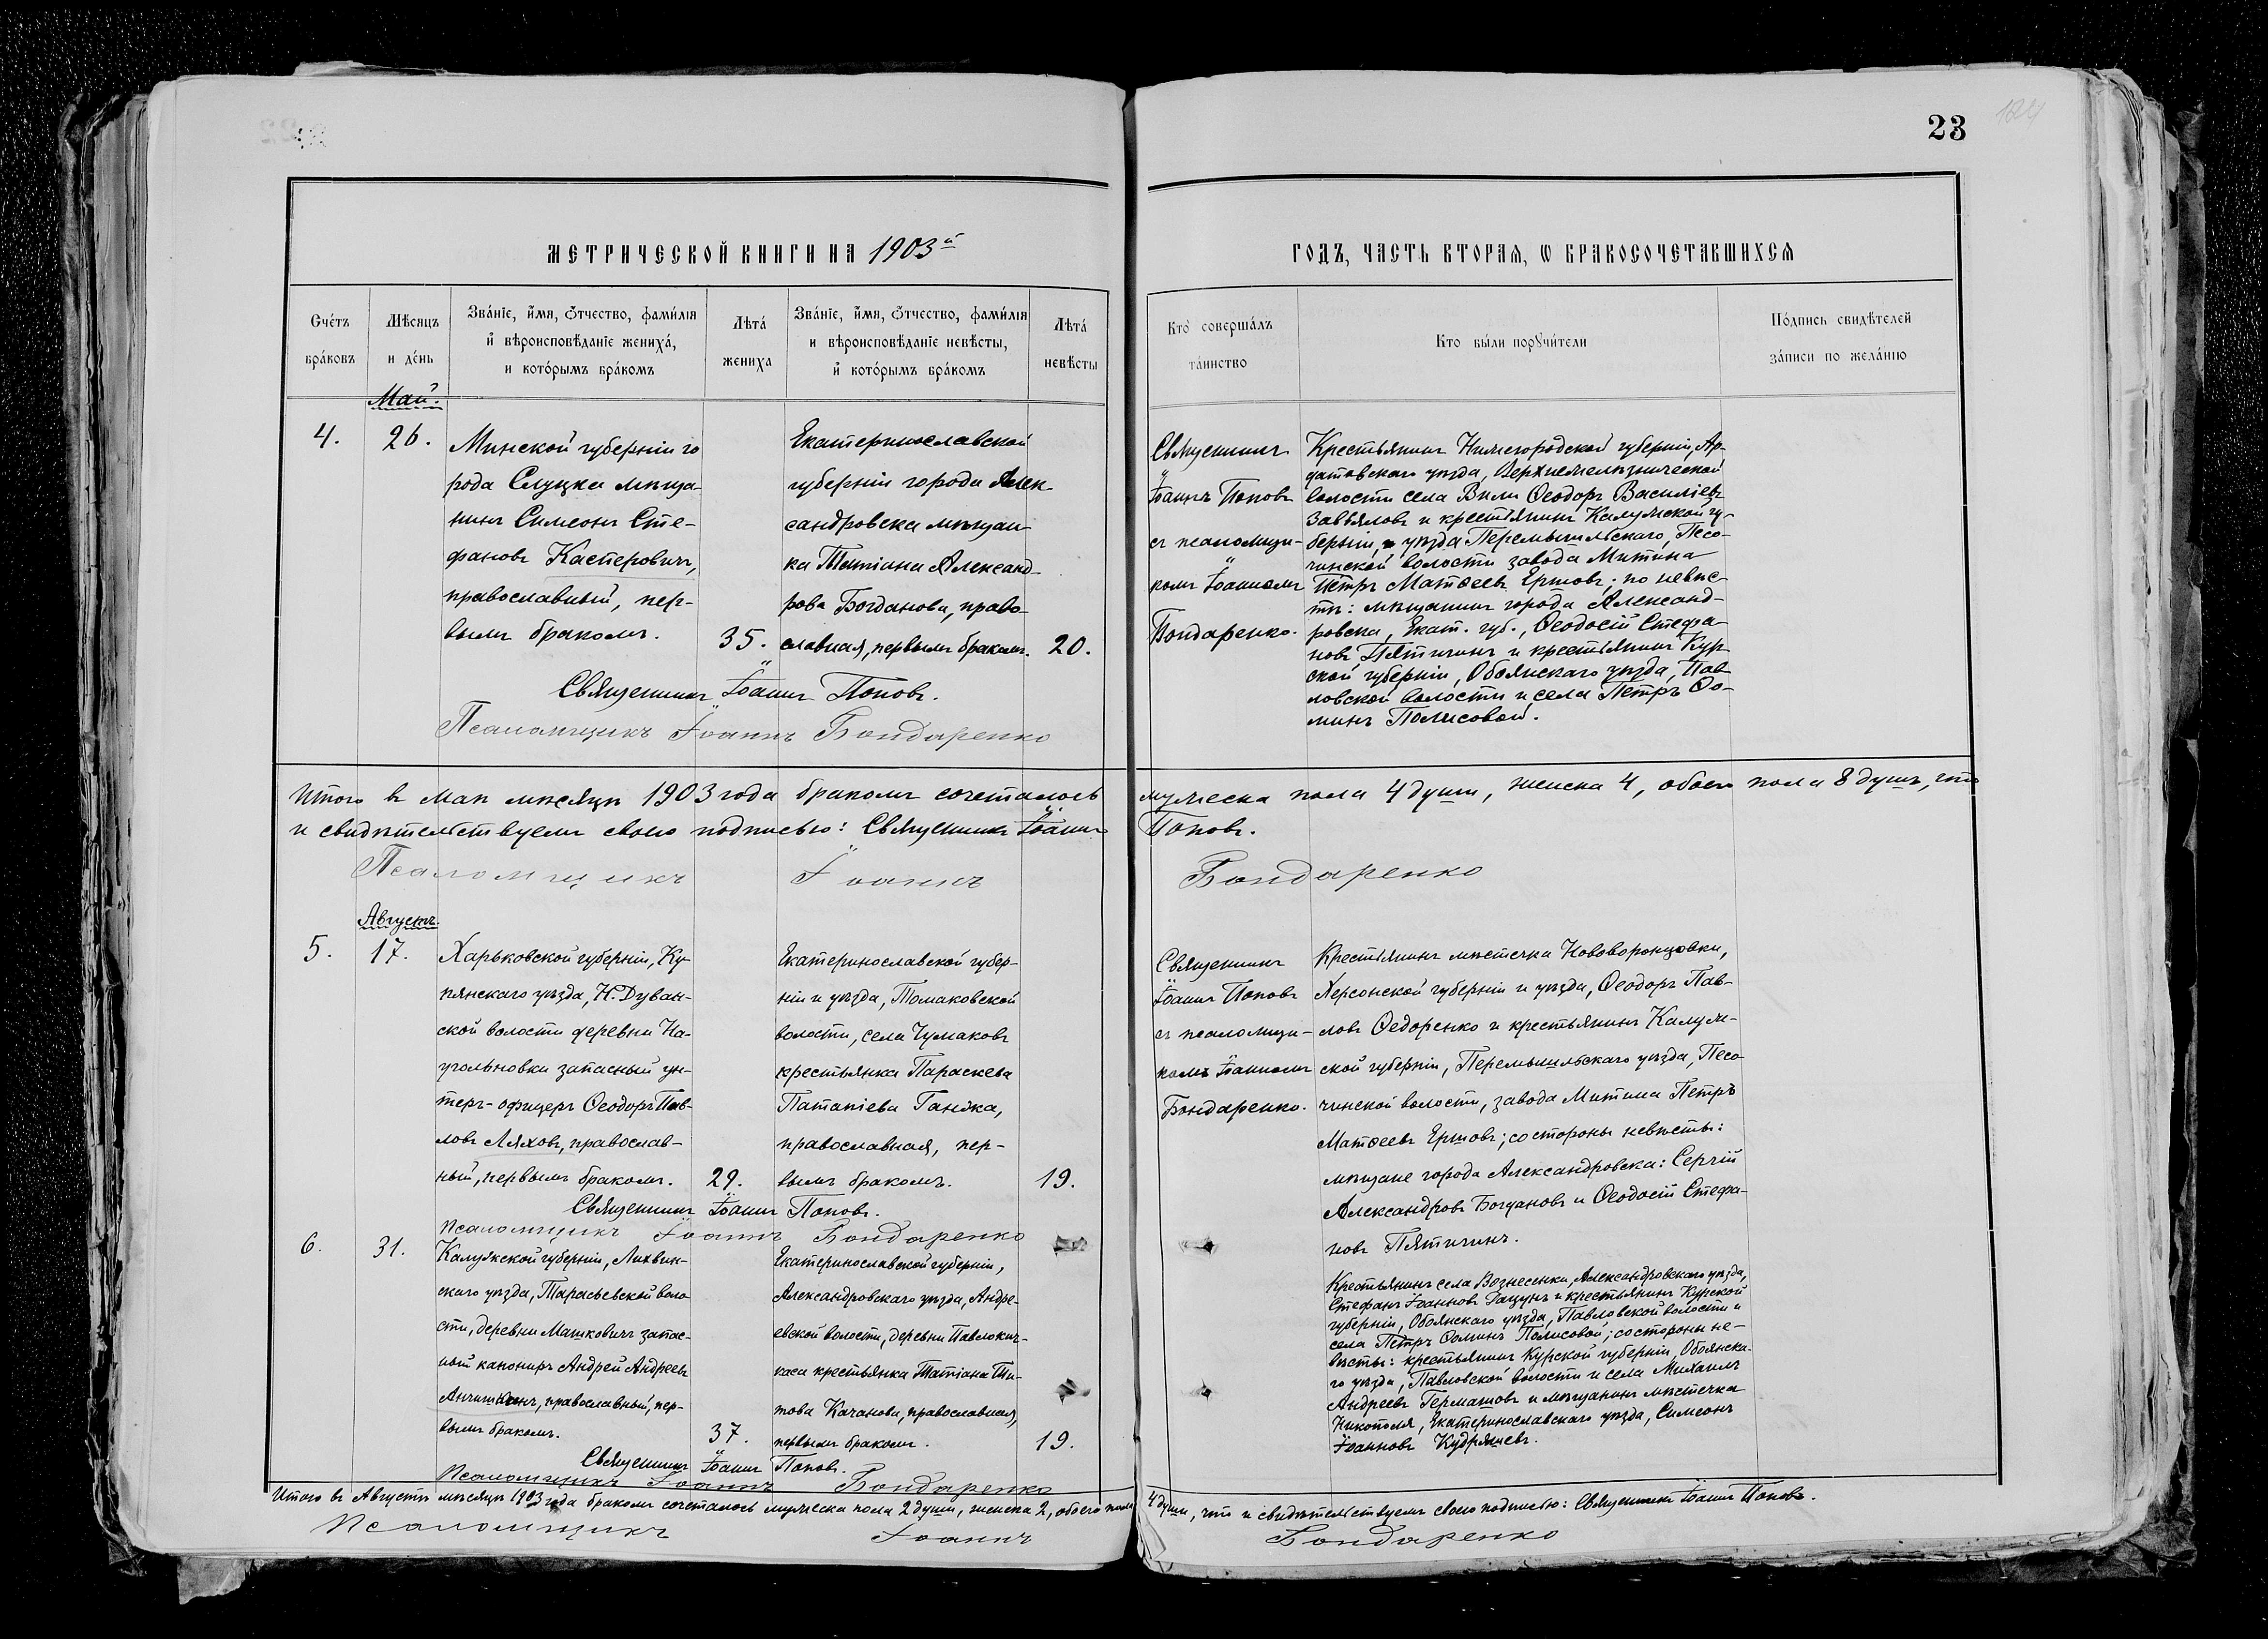 23
МЕТРИЧЕСКОЙ КНИГИ НА 1903й
ГОДЪ, ЧАСТЬ ВТОРАЯ, Ѡ БРАКОСОЧЕТАВШИХСЯ
Счéтъ брáковъ
Мѣсяцъ и дéнь
Звáнїе, и҆́мя, ѻ҆́тчество, фами́лїя
и҆ вѣроисповѣ́данїе жениха̀,
и кото́рымъ брáкомъ
Лѣтá жениха
Звáнїе, и҆́мя, ѻ҆́тчество, фами́лїя
и вѣроисповѣ́данїе невѣ́сты,
и҆ кото́рымъ брáкомъ
Лѣтá невѣ́сты
Кто̀ совершáлъ тáинство
Кто бы́ли порꙋчи́тели
По́дпись свидѣ́телей зáписи по желáнїю
Май.
4.
26.
Минской губерніи го
рода Слуцка мѣща-
нинъ Симеонъ Сте-
фановъ Кастеровичъ,
православный, пер-
вымъ бракомъ.
35.
Екатеринославской
губерніи города Алек
сандровска мѣщан
ка Татіана Александ-
рова Богданова, право-
славная, первымъ бракомъ.
20.
Священникъ Іоаннъ Поповъ.
Псаломщикъ Іоаннъ Бондаренко
Священникъ
Іоаннъ Поповъ
съ псаломщи-
комъ Іоанномъ
Бондаренко.
Крестьянинъ Нижегородской губерніи, Ар-
датовскаго уѣзда, Верхнемелѣзнической
волости села Вили Ѳеодоръ Василіевъ
Завьяловъ и крестьянинъ Калужской гу-
берніи, уѣзда Перемышльскаго, Песо-
чинской волости завода Митина
Петръ Матѳеевъ Ершовъ; по невѣс-
тѣ: мѣщанинъ города Александ-
ровска, Екат. губ., Ѳеодосій Стефа-
новъ Пятигинъ и крестьянинъ Кур-
ской губерніи, Обоянскаго уѣзда, Пав
ловской волости и села Петръ Ѳо-
минъ Полисовой.
Итого въ Маѣ мѣсяцѣ 1903 года бракомъ сочеталось мужеска пола 4 души, женска 4, обоего пола 8 душъ, что
и свидѣтельствуемъ своею подписью: Священникъ Іоаннъ Поповъ.
Псаломщикъ Іоаннъ Бондаренко
Августъ.
5.
17.
Харьковской губерніи, Ку-
пянскаго уѣзда, Н. Дуван-
ской волости деревни На-
угольновки запасный ун-
теръ-офицеръ Ѳеодоръ Пав-
ловъ Ляховъ, православ-
ный, первымъ бракомъ.
29.
Екатеринославской губер-
ніи и уѣзда, Томаковской
волости, села Чумаковъ
крестьянка Параскева
Патапіева Ганжа,
православная, пер-
вымъ бракомъ.
19.
Священникъ Іоаннъ Поповъ.
Псаломщикъ Іоаннъ Бондаренко
Священникъ
Іоаннъ Поповъ
съ псаломщи-
комъ Іоанномъ
Бондаренко.
Крестьянинъ мѣстечка Нововоронцовки,
Херсонской губерніи и уѣзда, Ѳеодоръ Пав-
ловъ Ѳедоренко и крестьянинъ Калуж-
ской губерніи, Перемышльскаго уѣзда, Песо-
чинской волости, завода Митина Петръ
Матѳеевъ Ершовъ; со стороны невѣсты:
мѣщане города Александровска: Сергій
Александровъ Богдановъ и Ѳеодосій Стефа-
новъ Пятигинъ.
6.
31.
Калужской губерніи, Лихвин-
скаго уѣзда, Тарасьевской воло
сти, деревни Машковичъ запас-
ный канониръ Андрей Андреевъ
православный, пер-
вымъ бракомъ.
37.
Екатеринославской губерніи,
Александровскаго уѣзда, Андре-
евской волости, деревни Павлокич-
каса крестьянка Татіана Ти-
това Качанова, православная,
первымъ бракомъ.
19.
Священникъ Іоаннъ Поповъ.
Псаломщикъ Іоаннъ Бондаренко
Крестьянинъ села Вознесенки, Александровскаго уѣзда,
Стефанъ Іоанновъ Гацунъ и крестьянинъ Курской
губерніи, Обоянскаго уѣзда, Павловской волости и
села Петръ Ѳоминъ Полисовой; со стороны не-
вѣсты: крестьянинъ Курской губерніи, Обоянска-
го уѣзда, Павловской волости и села Михаилъ
Андреевъ Гермашовъ и мѣщанинъ мѣстечка
Никополя, Екатеринославскаго уѣзда, Симеонъ
Іоанновъ Кудряшевъ.
Итого въ Августѣ мѣсяцѣ 1903 года бракомъ сочеталось мужеска пола 2 души, женска 2, обоего пола 4 души, что и свидѣтельствуемъ своею подписью: Священникъ Іоаннъ Поповъ.
Псаломщикъ Іоаннъ Бондаренко